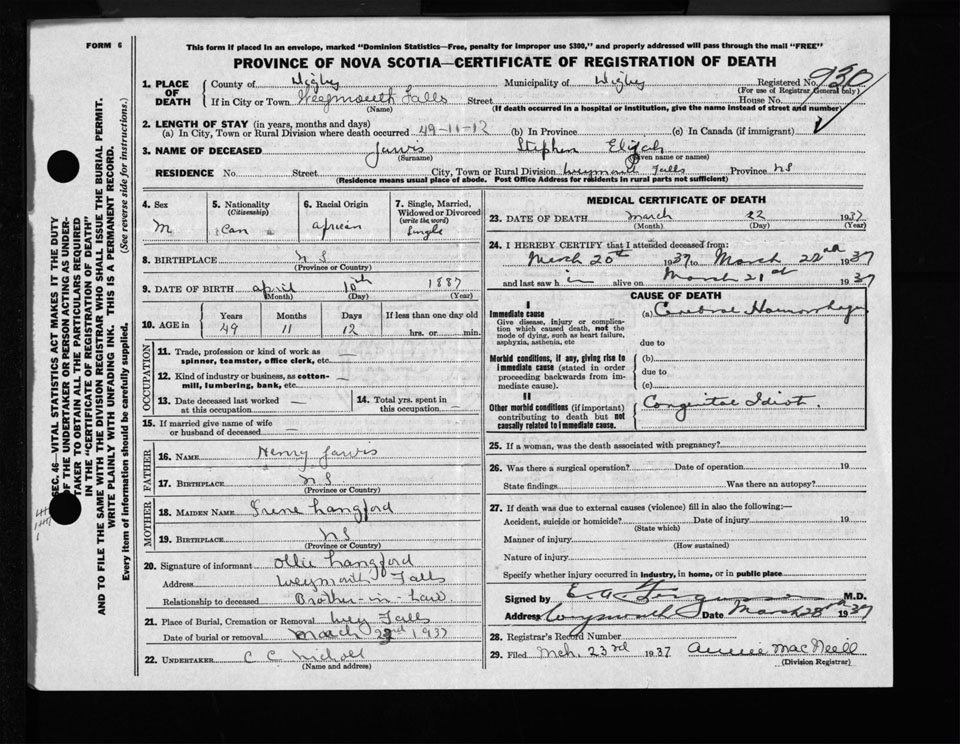 FORM 6
This form if placed in an envelope, marked "Dominion Statistics—Free, penalty for improper use $300," and properly addressed will pass through the mail "FREE"
PROVINCE OF NOVA SCOTIA—CERTIFICATE OF REGISTRATION OF DEATH
SEC. 46—VITAL STATISTICS ACT MAKES IT THE DUTY
OF THE UNDERTAKER OR PERSON ACTING AS UNDER-
TAKER TO OBTAIN ALL THE PARTICULARS REQUIRED
IN THE "CERTIFICATE OF REGISTRATION OF DEATH"
AND TO FILE THE SAME WITH THE DIVISION REGISTRAR WHO SHALL ISSUE THE BURIAL PERMIT.
WRITE PLAINLY WITH UNFADING INK. THIS IS A PERMANENT RECORD.
Every item of information should be carefully supplied. (See reverse side for instructions.)
1. PLACE OF DEATH County of Digby Municipality of Digby Registered No. 930
(For use of Registrar General only)
If in City or Town Weymouth Falls Street House No.
(Name) (If death occurred in a hospital or institution, give the name instead of street and number)
2. LENGTH OF STAY (in years, months and days)
(a) In City, Town or Rural Division where death occurred 49-11-12 (b) In Province (c) In Canada (if immigrant)
3. NAME OF DECEASED Jarvis Stephen Elijah
(Surname) (Given name or names)
RESIDENCE No Street City, Town or Rural Division Weymouth Falls Province NS
(Residence means usual place of abode. Post Office Address for residents in rural parts not sufficient)
4. Sex M
5. Nationality (Citizenship) Can
6. Racial Origin African
7. Single, Married, Widowed or Divorced (write the word) Single
8. BIRTHPLACE N S
(Province or Country)
9. DATE OF BIRTH April 10th 1887
(Month) (Day) (Year)
10. AGE in Years Months Days If less than one day old
49 11 12 hrs. or min.
OCCUPATION
11. Trade, profession or kind of work as spinner, teamster, office clerk, etc. —
12. Kind of industry or business, as cotton-mill, lumbering, bank, etc. —
13. Date deceased last worked at this occupation —
14. Total yrs. spent in this occupation —
15. If married give name of wife or husband of deceased —
FATHER
16. NAME Henry Jarvis
17. BIRTHPLACE N S
(Province or Country)
MOTHER
18. MAIDEN NAME Irene Langford
19. BIRTHPLACE N S
(Province or Country)
20. Signature of informant Ollie Langford
Address Weymouth Falls
Relationship to deceased Brother-in-Law
21. Place of Burial, Cremation or Removal Wey Falls
Date of burial or removal March 23rd 1937
22. UNDERTAKER C C Nichol
(Name and address)
MEDICAL CERTIFICATE OF DEATH
23. DATE OF DEATH March 22 1937
(Month) (Day) (Year)
24. I HEREBY CERTIFY that I attended deceased from:
March 20th 1937 to March 22nd 1937
and last saw h im alive on March 21st 1937
CAUSE OF DEATH
I
Immediate cause
Give disease, injury or complication which caused death, not the mode of dying, such as heart failure, asphyxia, asthenia, etc
(a) Cerebral Haemorrhage
due to
Morbid conditions, if any, giving rise to immediate cause (stated in order proceeding backwards from immediate cause).
(b)
due to
(c)
II
Other morbid conditions (if important) contributing to death but not causally related to immediate cause.
Congenital Idiot.
25. If a woman, was the death associated with pregnancy?
26. Was there a surgical operation? Date of operation 19
State findings Was there an autopsy?
27. If death was due to external causes (violence) fill in also the following:—
Accident, suicide or homicide? Date of injury 19
(State which)
Manner of injury
(How sustained)
Nature of injury
Specify whether injury occurred in industry, in home, or in public place
Signed by M.D.
Address Weymouth Date March 1937
28. Registrar's Record Number
29. Filed Mch. 23rd 1937 MacNeill
(Division Registrar)